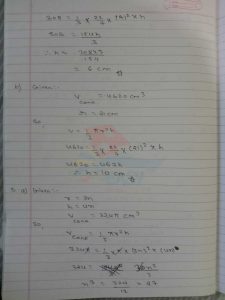 308 = 1/3 × 22/7 × (7)² × h
308 = 154h/3
∴ h = 308×3/154
= 6 cm
b) Given :-
V cone = 4620 cm³
r = 21 cm
So,
V = 1/3 πr²h
4620 = 1/3 × 22/7 × (21)² × h
4620 = 462h
∴ h = 10 cm
5. a) Given :-
r = 3n
h = 4n
V cone = 324π cm³
So,
V cone = 1/3 πr²h
324π = 1/3 × π × (3n)² × (4n)
324 =
n³ = 324/12 = 27